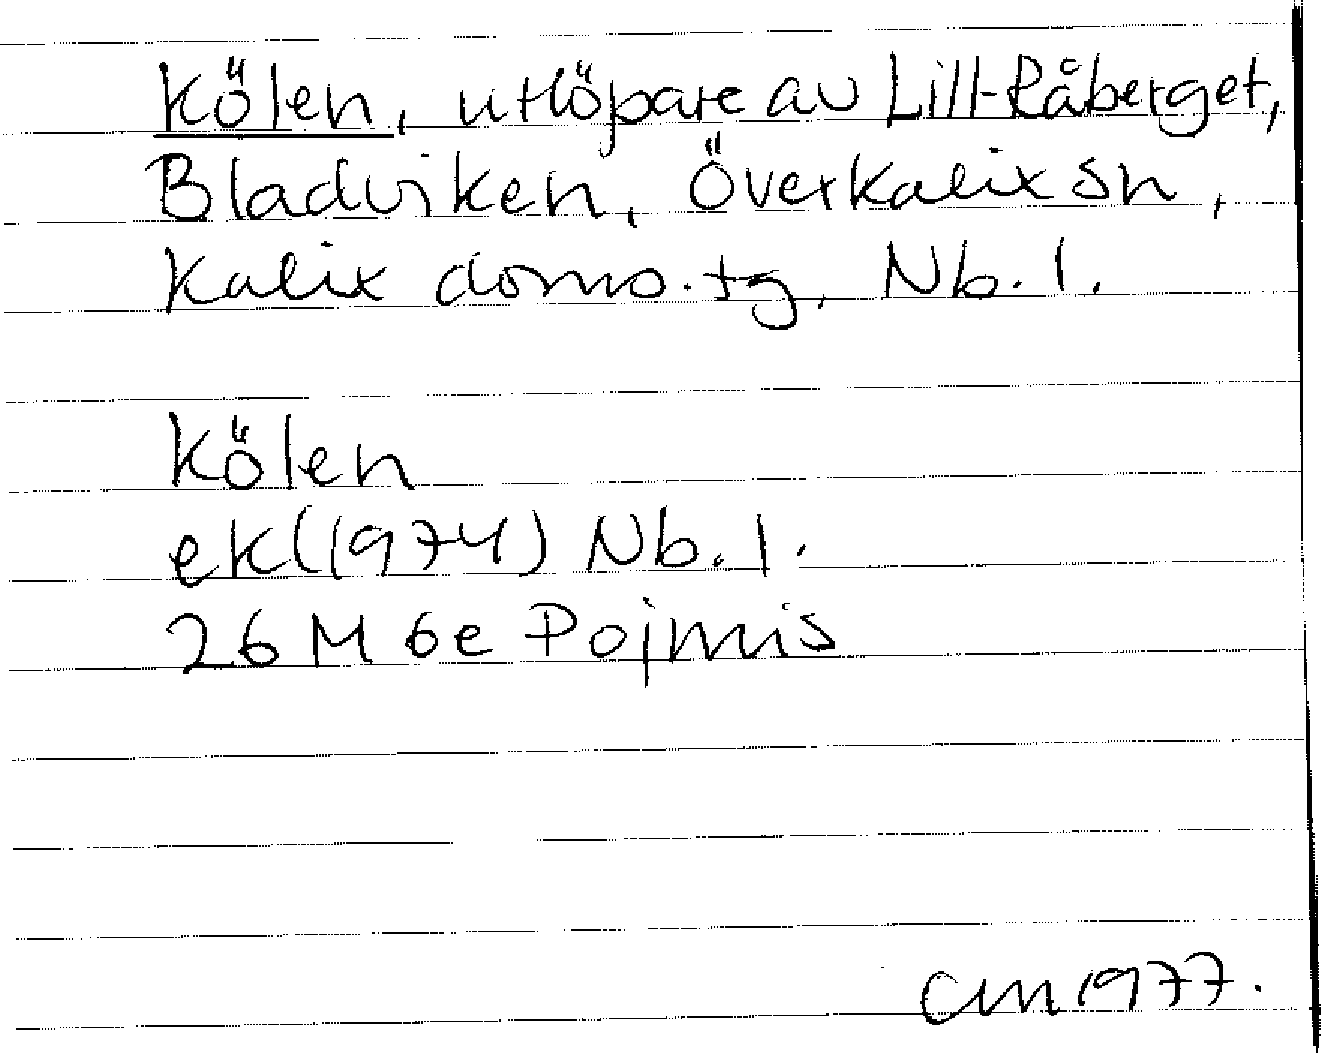 Kölen, utlöpare av Lill-Råberget,
Bladviken, Överkalix sn,
Kalix doms. tg, Nb. l.
Kölen
ek (1974) Nb. l.
26 M 6e Pojmis
CM 1977.